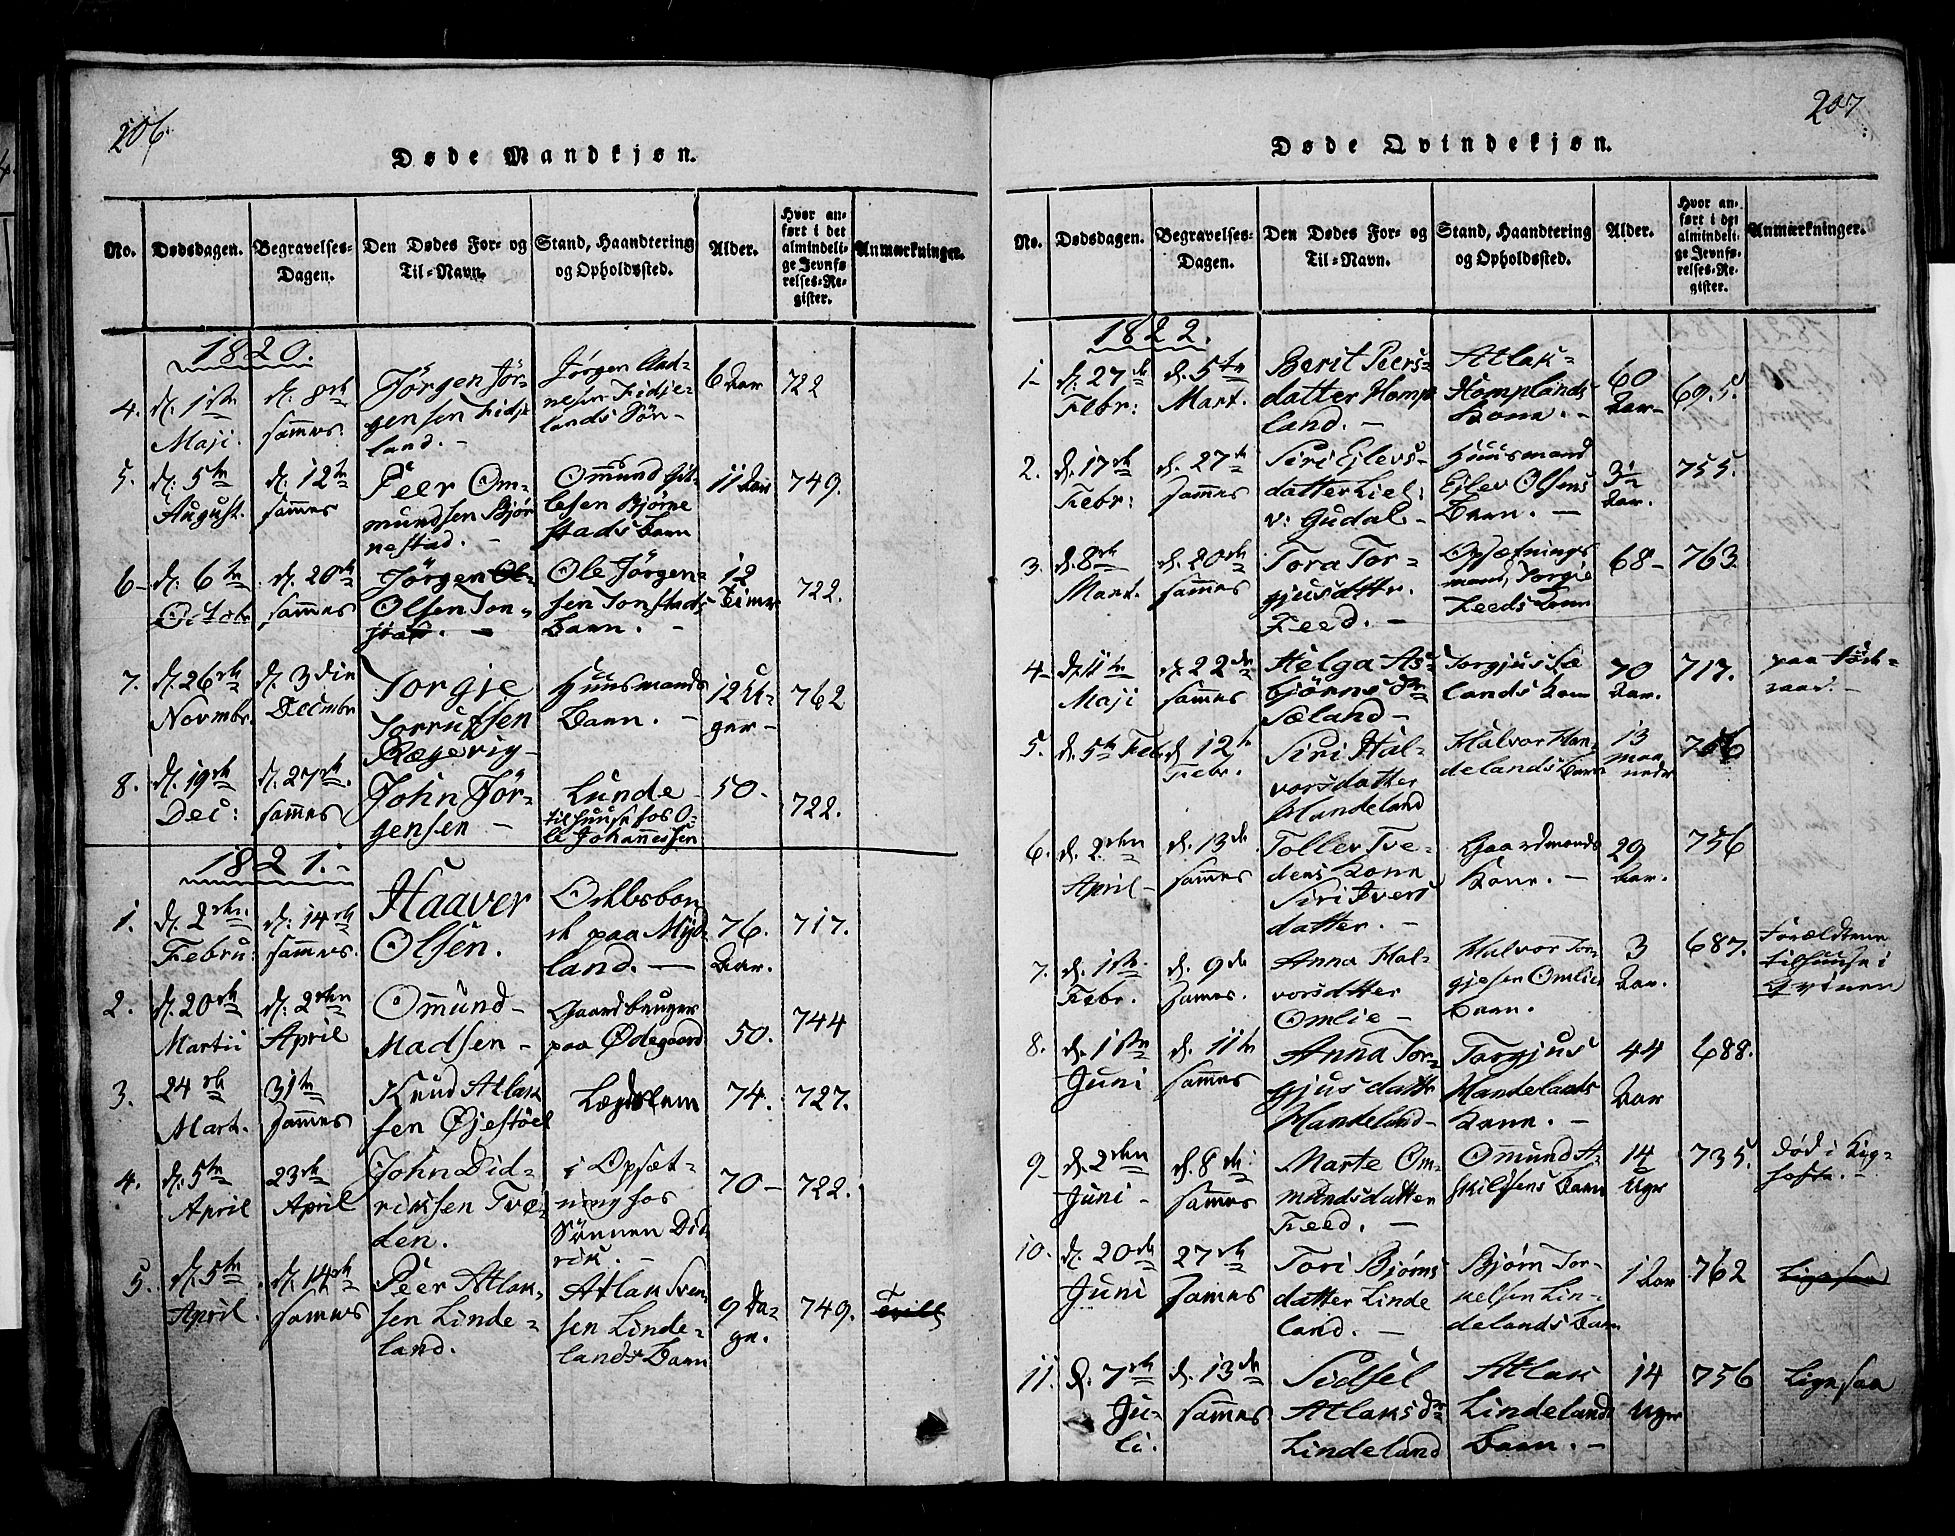 206.
Døde Mandkjøn.
No.
Dødsdagen.
Begravelses-
Dagen.
Den Dødes For- og
Til-Navn.
Stand, Haandtering
og Opholdssted.
Alder.
Hvor an-
ført i det
almindeli-
ge Jevnfø-
relses-Re-
gister.
Anmærkninger.
1820.
4.
d. 1ste
Maji.
d. 8de
sammes
Jörgen Jör-
gensen Fidje
land.
Jörgen And-
nesen Fidje-
lands Sön
6 Aar
722
5.
d. 5te
August.
d. 12te
sammes
Peer Om-
mundsen Björ
nestad.
Omund Gut-
lesen Bjørne
stads Barn
11 Aar
749.
6
d. 6te
Octobr
d. 20de
sammes
Jörgen Ol-
Olsen Ton-
stad.
Ole Jörgen-
sen Tonstads
Barn.
12
Timer
722.
7.
d. 26de
Novmbr.
d. 3die
Decmbr
Torgje
Torrussen
Rægevig
Huusmands
Barn.
12 U-
ger
762
8.
d. 19de
Dec:
d. 27de
sammes
John Jör-
gensen
Lunde
til huuse hos O-
le Johannessen
50.
722.
1821.
1.
d. 2den
Febru:
d. 14de
sammes.
Haaver
Olsen.
paa Myd-
land.
76.
Aar.
717.
2.
d. 20de
Martii
d. 2den
April
Omund
Madsen
Gaardbruger
paa Ødegaard
50.
744
3.
24de
Mart.
31te
sammes
Knud Atlak
sen Øjestöel
Lægdslem
74.
727.
4.
d. 5te
April
23de
April
John Did-
riksen Tvé-
den.
i Opsæt-
ning hos
Sönnen Did
rik.
70
722.
5.
d. 5te
April.
d. 14de
sammes
Peer Atlak-
sen Linde-
land.
Atlak Sven-
sen Linde-
lands Barn
9 Da-
ge.
749.
207.
Døde Qvindekjøn.
No.
Dødsdagen.
Begravelses-
Dagen.
Den Dødes For- og
Til-Navn.
Stand, Haandtering
og Opholdssted.
Alder.
Hvor an-
ført i det
almindeli-
ge Jevnfø-
relses-Re-
gister.
Anmærkninger.
1822.
1
d. 27de
Febr:
d. 5te
Mart.
Berit Peers-
datter Homp
land.
Atlak
Homplands
Kone.
60
Aar
695.
2.
d. 17de
Febr:
d. 27de
sammes
Siri Ejlevs-
datter Liel:
v: Gudal
Huusmand
Ejlev Olsens
Barn.
3½
Aar.
755.
3.
d. 8de
Mart.
d. 20de
sammes
Tora Tor-
gjusdttr.
Feed.
Opsætnings
mand, Torgie
Feeds Kone
68
763
4
d. 11te
Maji
d. 22de
sammes
Helga As-
björns Dtr
Sæland
Torgjus Sæ
lands Kone
70
Aar.
717.
5.
d. 5te Feb
d. 12te
Febr.
Siri Hal-
vorsdatter
Handeland
Halvor Han-
delands Barn
13
maa-
neder
6.
d. 2den
April
d. 13de
sammes
Tollev Tve-
dens Kone
Siri Ivers
datter.
Gaardmands
Kone.
29
Aar.
756
7.
d. 1ste
Febr.
d. 9de
sammes.
Anna Hal-
vorsdatter
Omlie
Halvor Tor-
gjesen Omlies
Barn.
3
Aar.
687.
Forældrene
tilhuuse i
Qvinen
8.
d. 1ste
Juni
d. 11te
sammes
Anna Tor-
gjusdattr
Handeland
Torgjus
Handelands
Kone.
44
Aar
688.
9
d. 2den
Juni
d. 8de
sammes
Marte Om-
mundsdatter
Feed.
Omund A-
skildsens Barn
14
Uger
735.
død i Kig-
hoste.
10.
d. 20de
Juni
27de
sammes
Tori Bjørns
datter Linde
land.
Bjørn Tor-
kelsen Lin-
delands Barn
1 Aar
762
Ligesaa
11.
d. 7de
Ju-
li.
d. 13de
sammes
Sidsel
Atlaks Dtr
Lindeland
Atlak
Lindelands
Barn.
14
Uger
756
Ligesaa